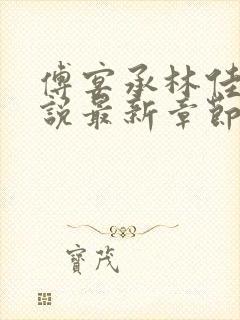 傅宴承林佳
説最新章節
寶茂